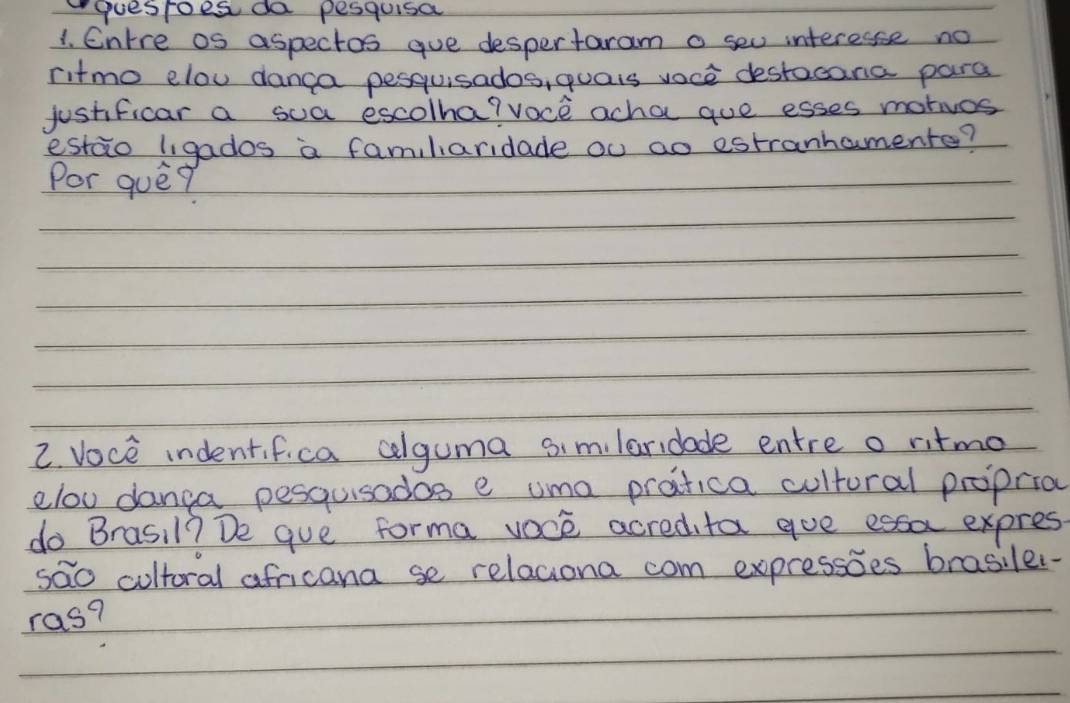 questões da pesquisa
1. Entre os aspectos que despertaram o seu interesse no
ritmo e/ou dança pesquisados, quais você destacaria para
justificar a sua escolha? Você acha que esses motivos
estão ligados à familiaridade ou ao estranhamento?
Por quê?
2. Você indentifica alguma similaridade entre o ritmo
e/ou dança pesquisados e uma prática cultural própria
do Brasil? De que forma você acredita que essa expres-
são cultural africana se relaciona com expressões brasilei-
ras?